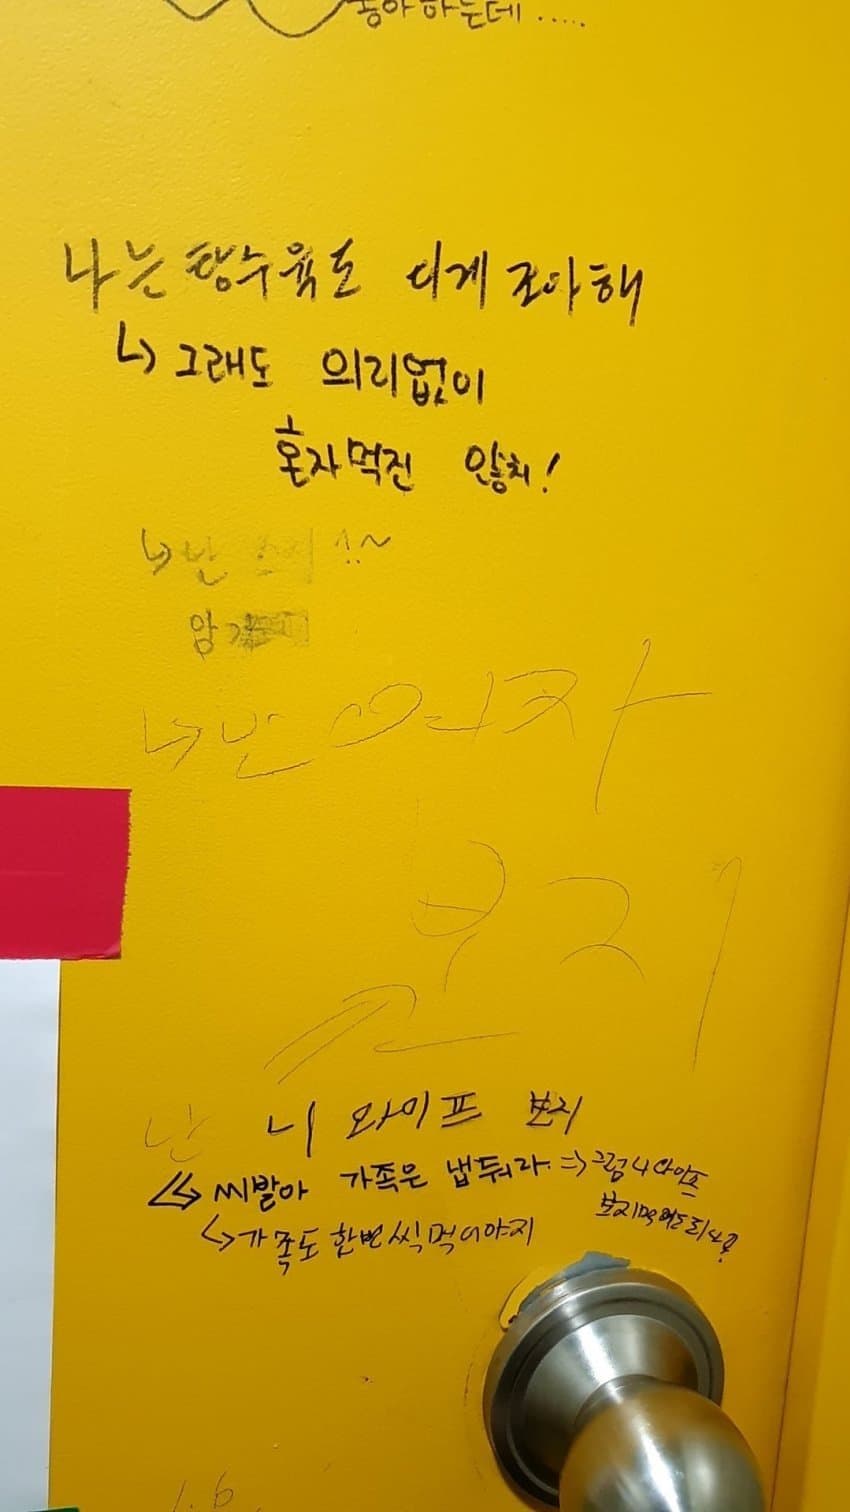 좋아하는데.....
나는 탕수육도 디게 조아해
↳ 그래도 의리없이
혼자먹진 않치!
↳ 난
암
↳ 난 여자
보지
난 니 와이프 보지
↳ 씨발아 가족은 냅둬라 ⇒ 그럼 니 와이프
보지먹어도되나?
↳ 가족도 한번씩먹어야지